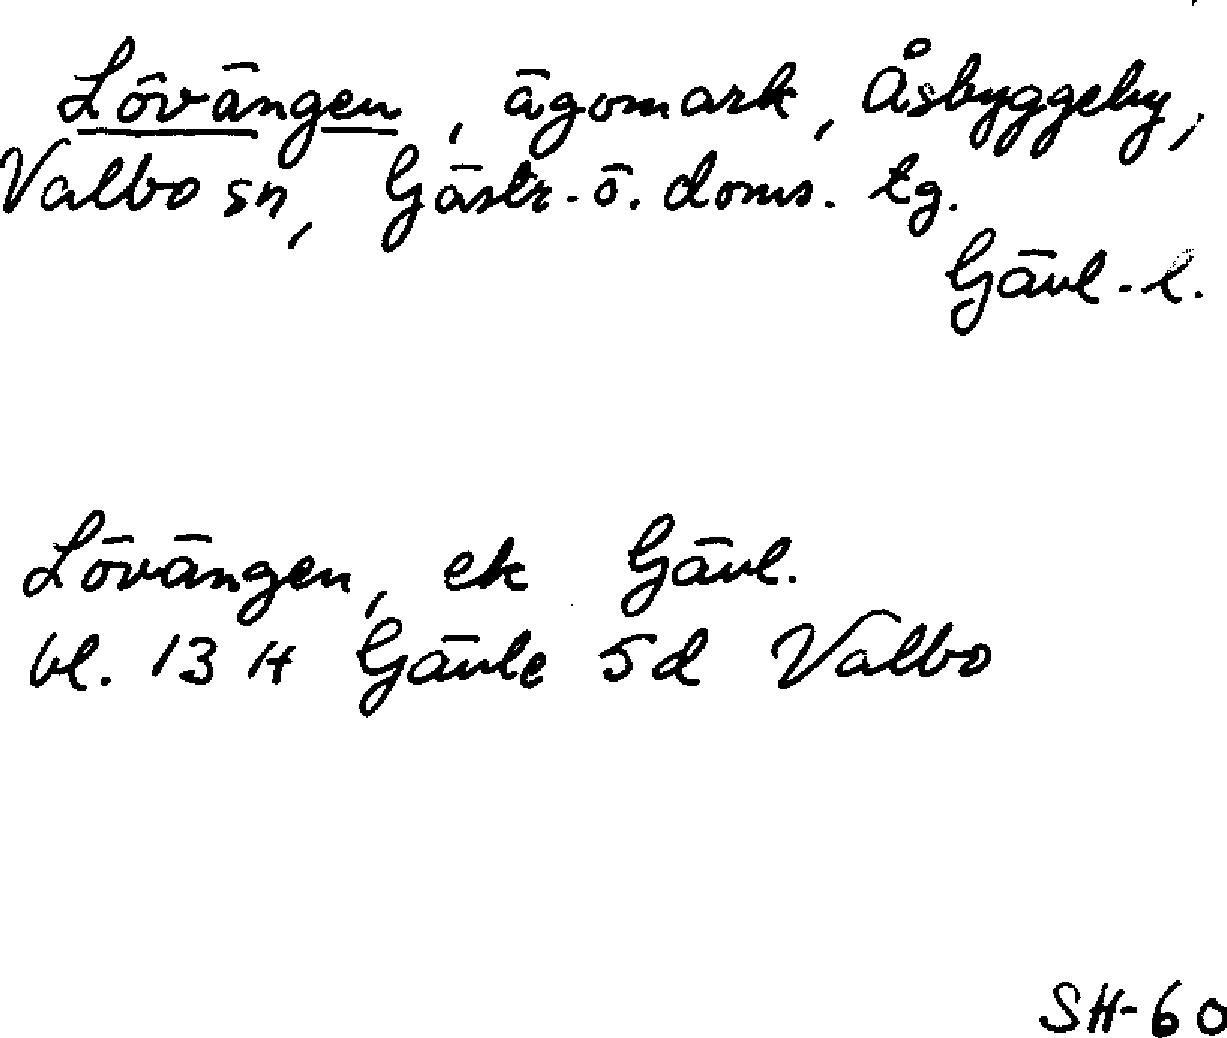 Lövängen, ägomark, Åsbyggeby,
Valbo sn, Gästr. ö. doms. tg.
Gävl. l.
Lövängen, ek Gävl.
bl. 13 H Gävle 5d Valbo
SH-60